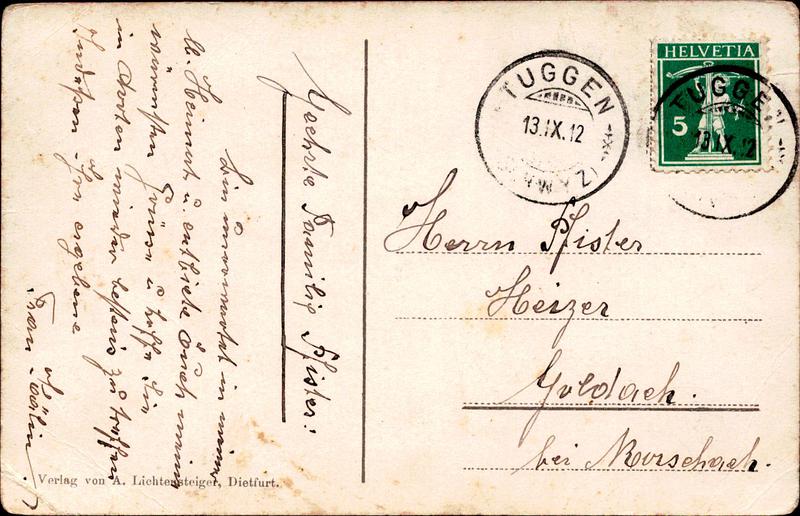 Geehrte Familie Pfister!
bin unerwartet in meiner
lb. Heimat u. entbiete Euch meine
wärmsten Grüsse u. hoffe Sie
in dorten wieder bestens zu treffen
Indessen Ihr ergebene
Frau
Verlag von A. Lichtensteiger, Dietfurt.
TUGGEN
13.IX.12
(SCHWYZ)
HELVETIA
5
TUGGEN
13.IX.12
Herrn Pfister
Heizer
Goldach.
bei Rorschach.